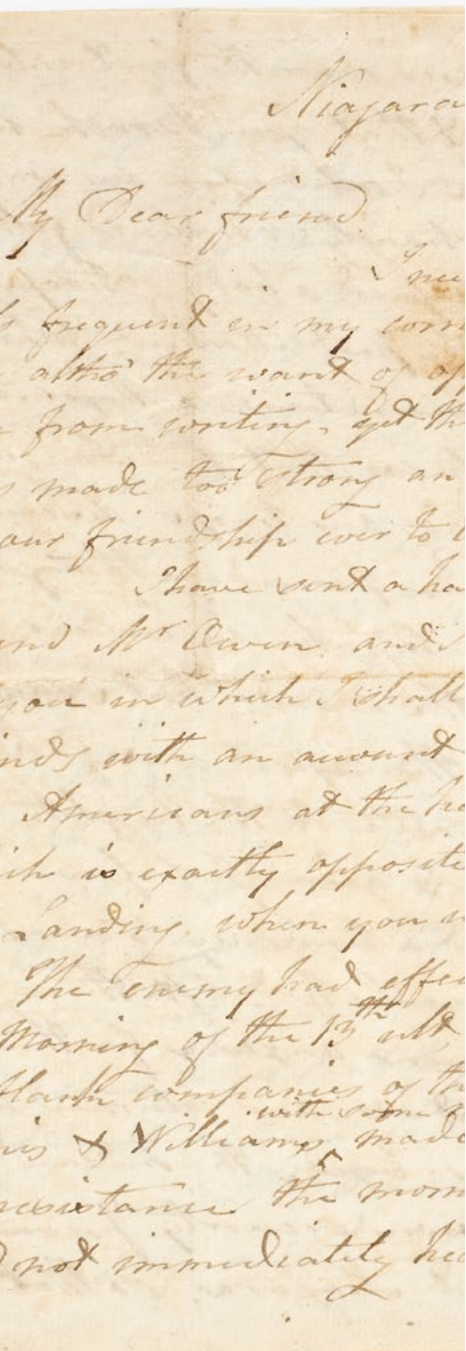 Niagara
My Dear friend
I
frequent in my
altho' the want of
from writing, yet
made too strong an
our friendship ever to
I have sent a
and Mr Owen, and
you in which I shall
with an account
Americans at the
is exactly opposite
Landing. when you
The Enemy had
Morning of the 13th ult,
flank companies of
with some
& Williams, made
resistance The
not immediately